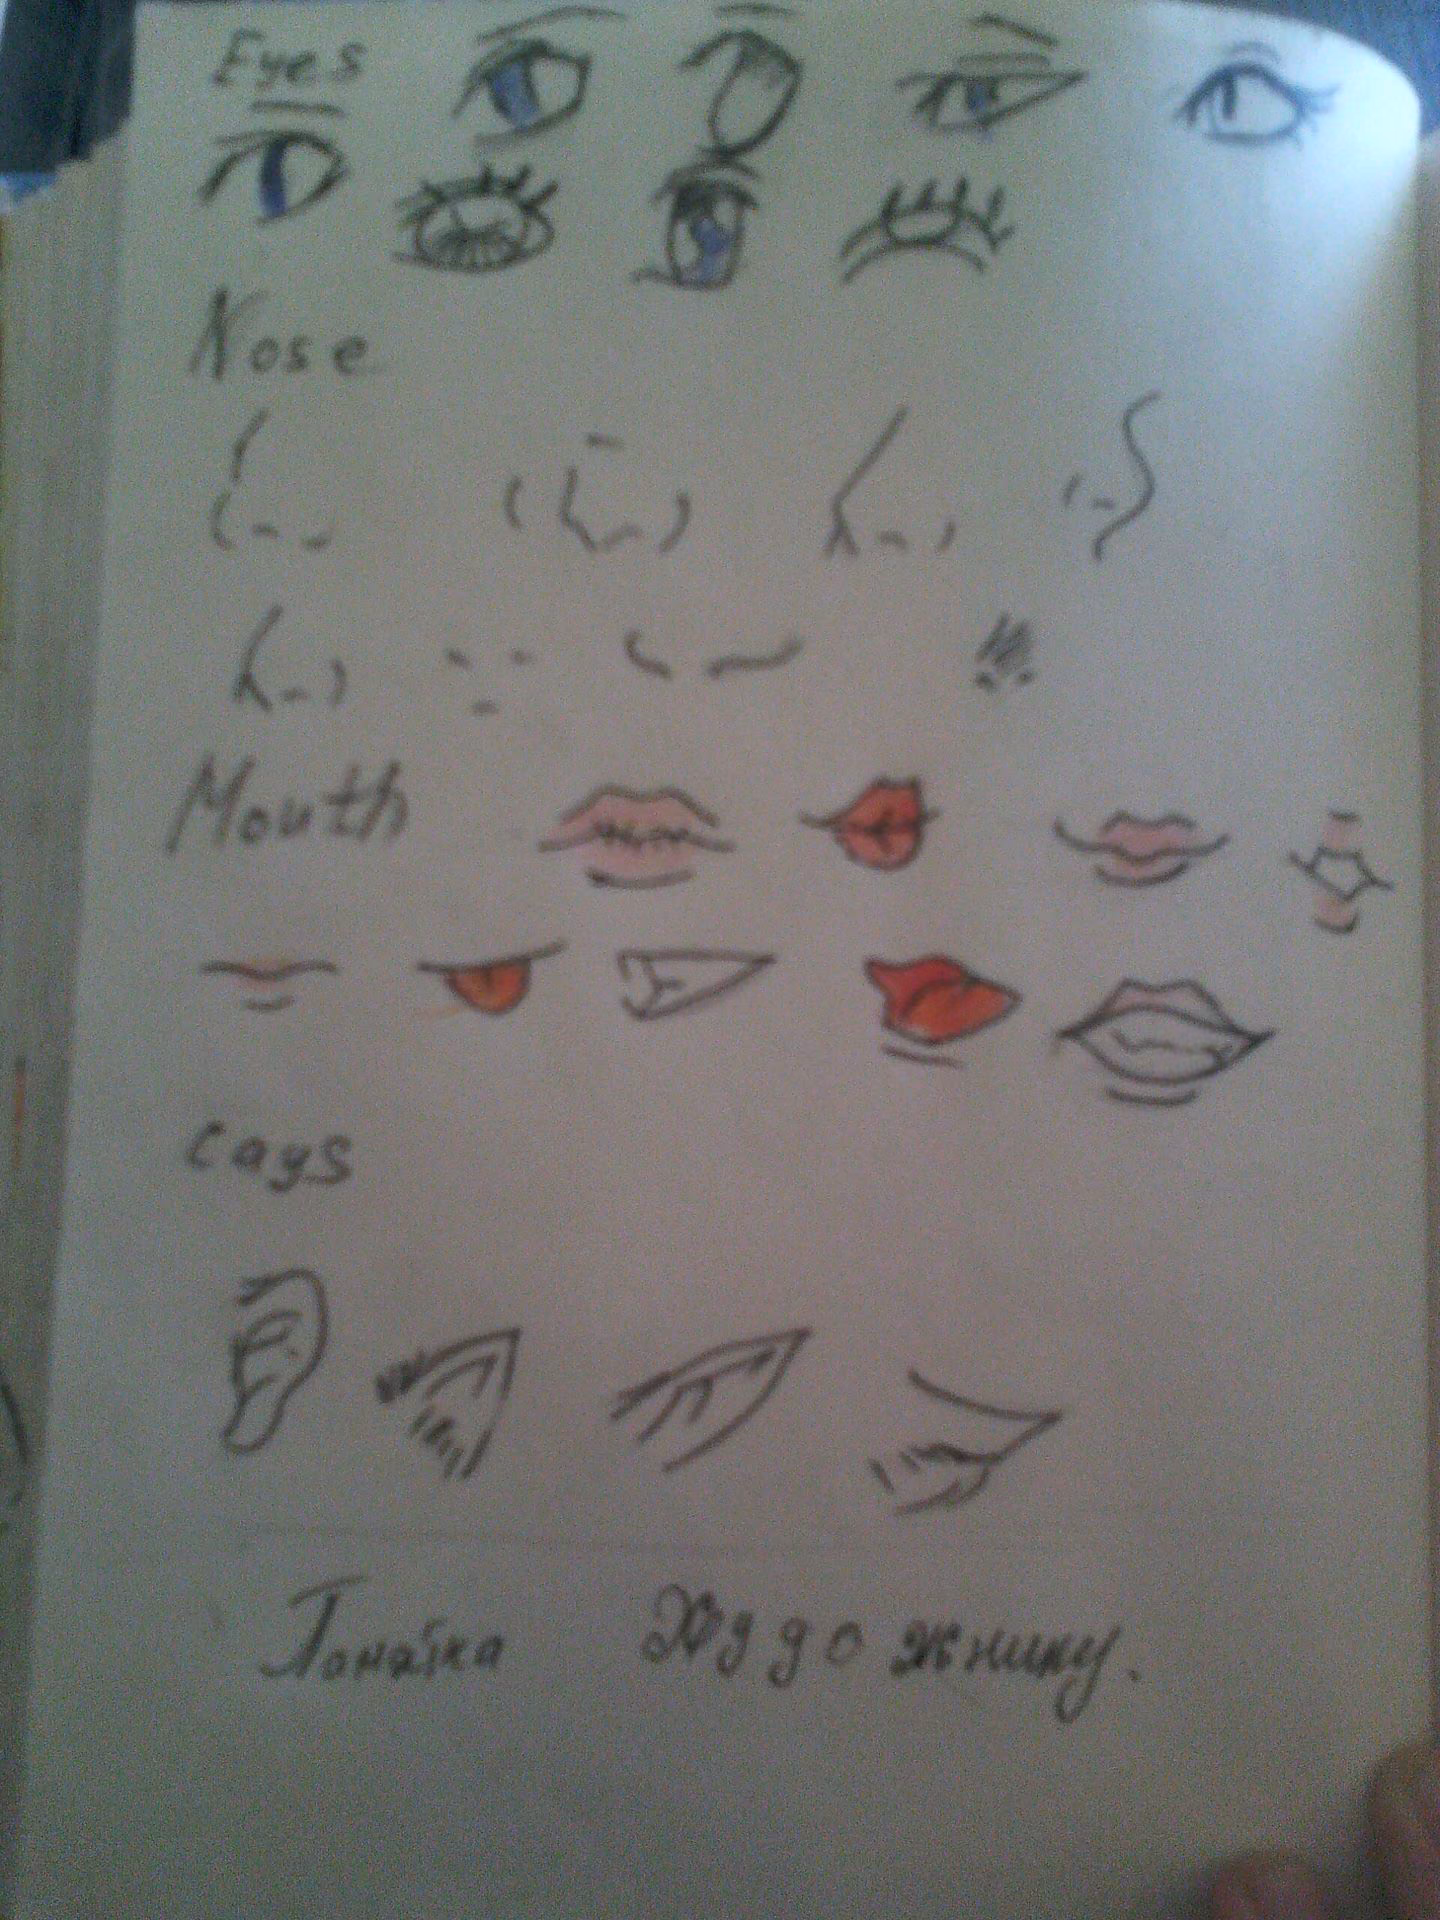 Eyes
Nose
Mouth
cays
Помаїка Художнику.